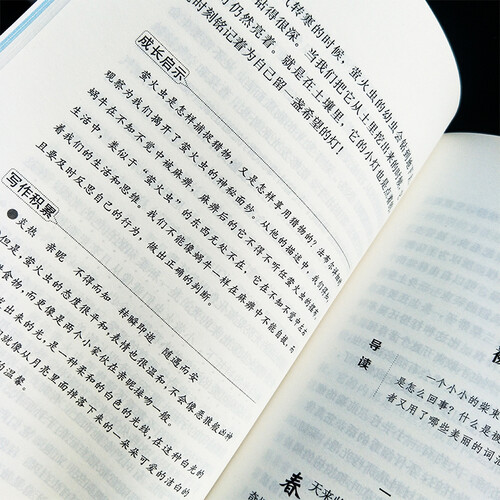 气转寒的时候，萤火虫的幼虫会钻
钻得很深。当我们把它从土里挖出来的时候，
仍然亮着。就是在土壤里，它的小灯也是点着
时刻铭记着为自己留一盏希望的灯！
成长启示
萤火虫是怎样捕捉猎物，又是怎样享用猎物的？法布尔
观察为我们揭开了萤火虫的神秘面纱。从他的描述中，我们得知，
蜗牛在不知不觉中被麻痹，麻痹后的它不得不听任萤火虫的
生活中，类似于“萤火虫”的东西无处不在，它在不知不觉中左右
着我们的生活和思维。我们不能像蜗牛一样在麻痹中不能自救，而
且要及时反思自己的行为，做出正确的判断。
写作积累
●炎热 亲昵 不得而知 转瞬即逝 随遇而安
但是，萤火虫的态度很平和，表情也很温和，不会像恶狼般凶神
食物，而更像是两个小家伙在亲昵接吻一般。
出来的光，是一种柔和的白色的光线，在这种白光的
就像从月亮里面掉落下来的一朵朵可爱的洁白的
温馨。
导读
一个小小的柴
是怎么回事？什么是被
者又用了哪些美丽的词
一
春天来